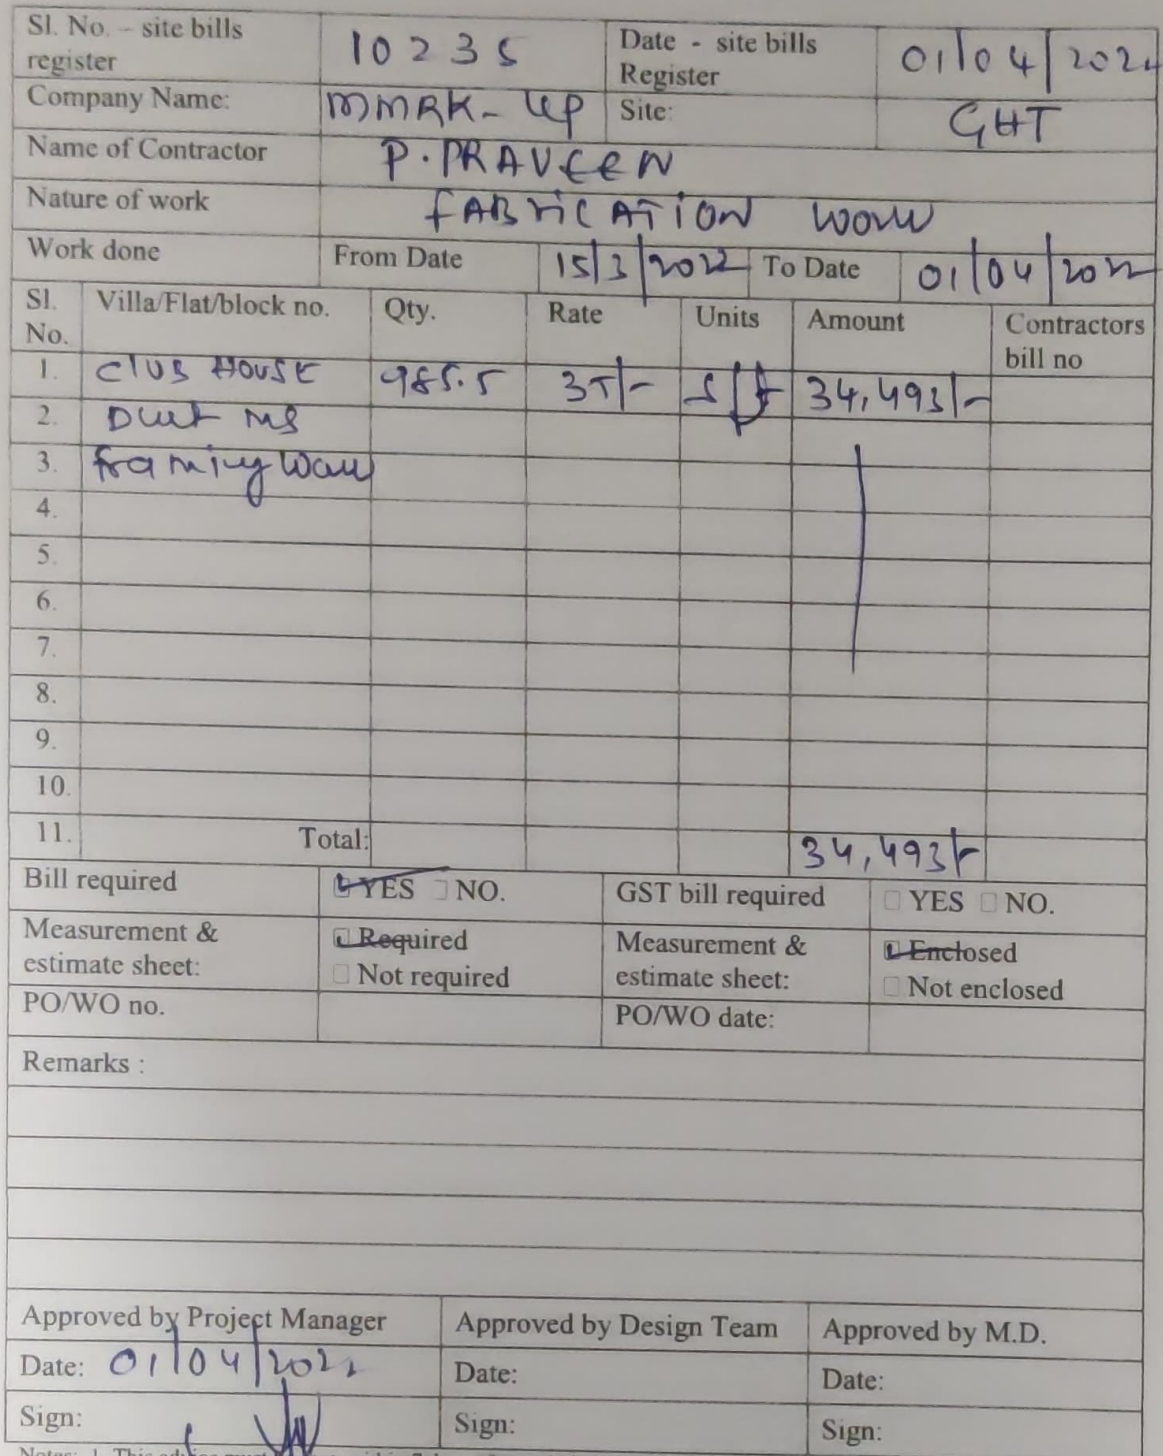 Sl. No. – site bills register 10235 Date - site bills Register 01/04/2022
Company Name: MMRK- UP Site: GHT
Name of Contractor P. PRAVEEN
Nature of work FABRICATION Work
Work done From Date 15/3/2022 To Date 01/04/2022
Sl. No. Villa/Flat/block no. Qty. Rate Units Amount Contractors bill no
1. CLUB HOUSE 985.5 35/- sft 34,493/-
2. Duct MS
3. framing Work
4.
5.
6.
7.
8.
9.
10.
11. Total: 34,493/-
Bill required YES NO. GST bill required YES NO.
Measurement & estimate sheet: Required Measurement & estimate sheet: Enclosed
Not required Not enclosed
PO/WO no. PO/WO date:
Remarks :
Approved by Project Manager Approved by Design Team Approved by M.D.
Date: 01/04/2022 Date: Date:
Sign: Sign: Sign: